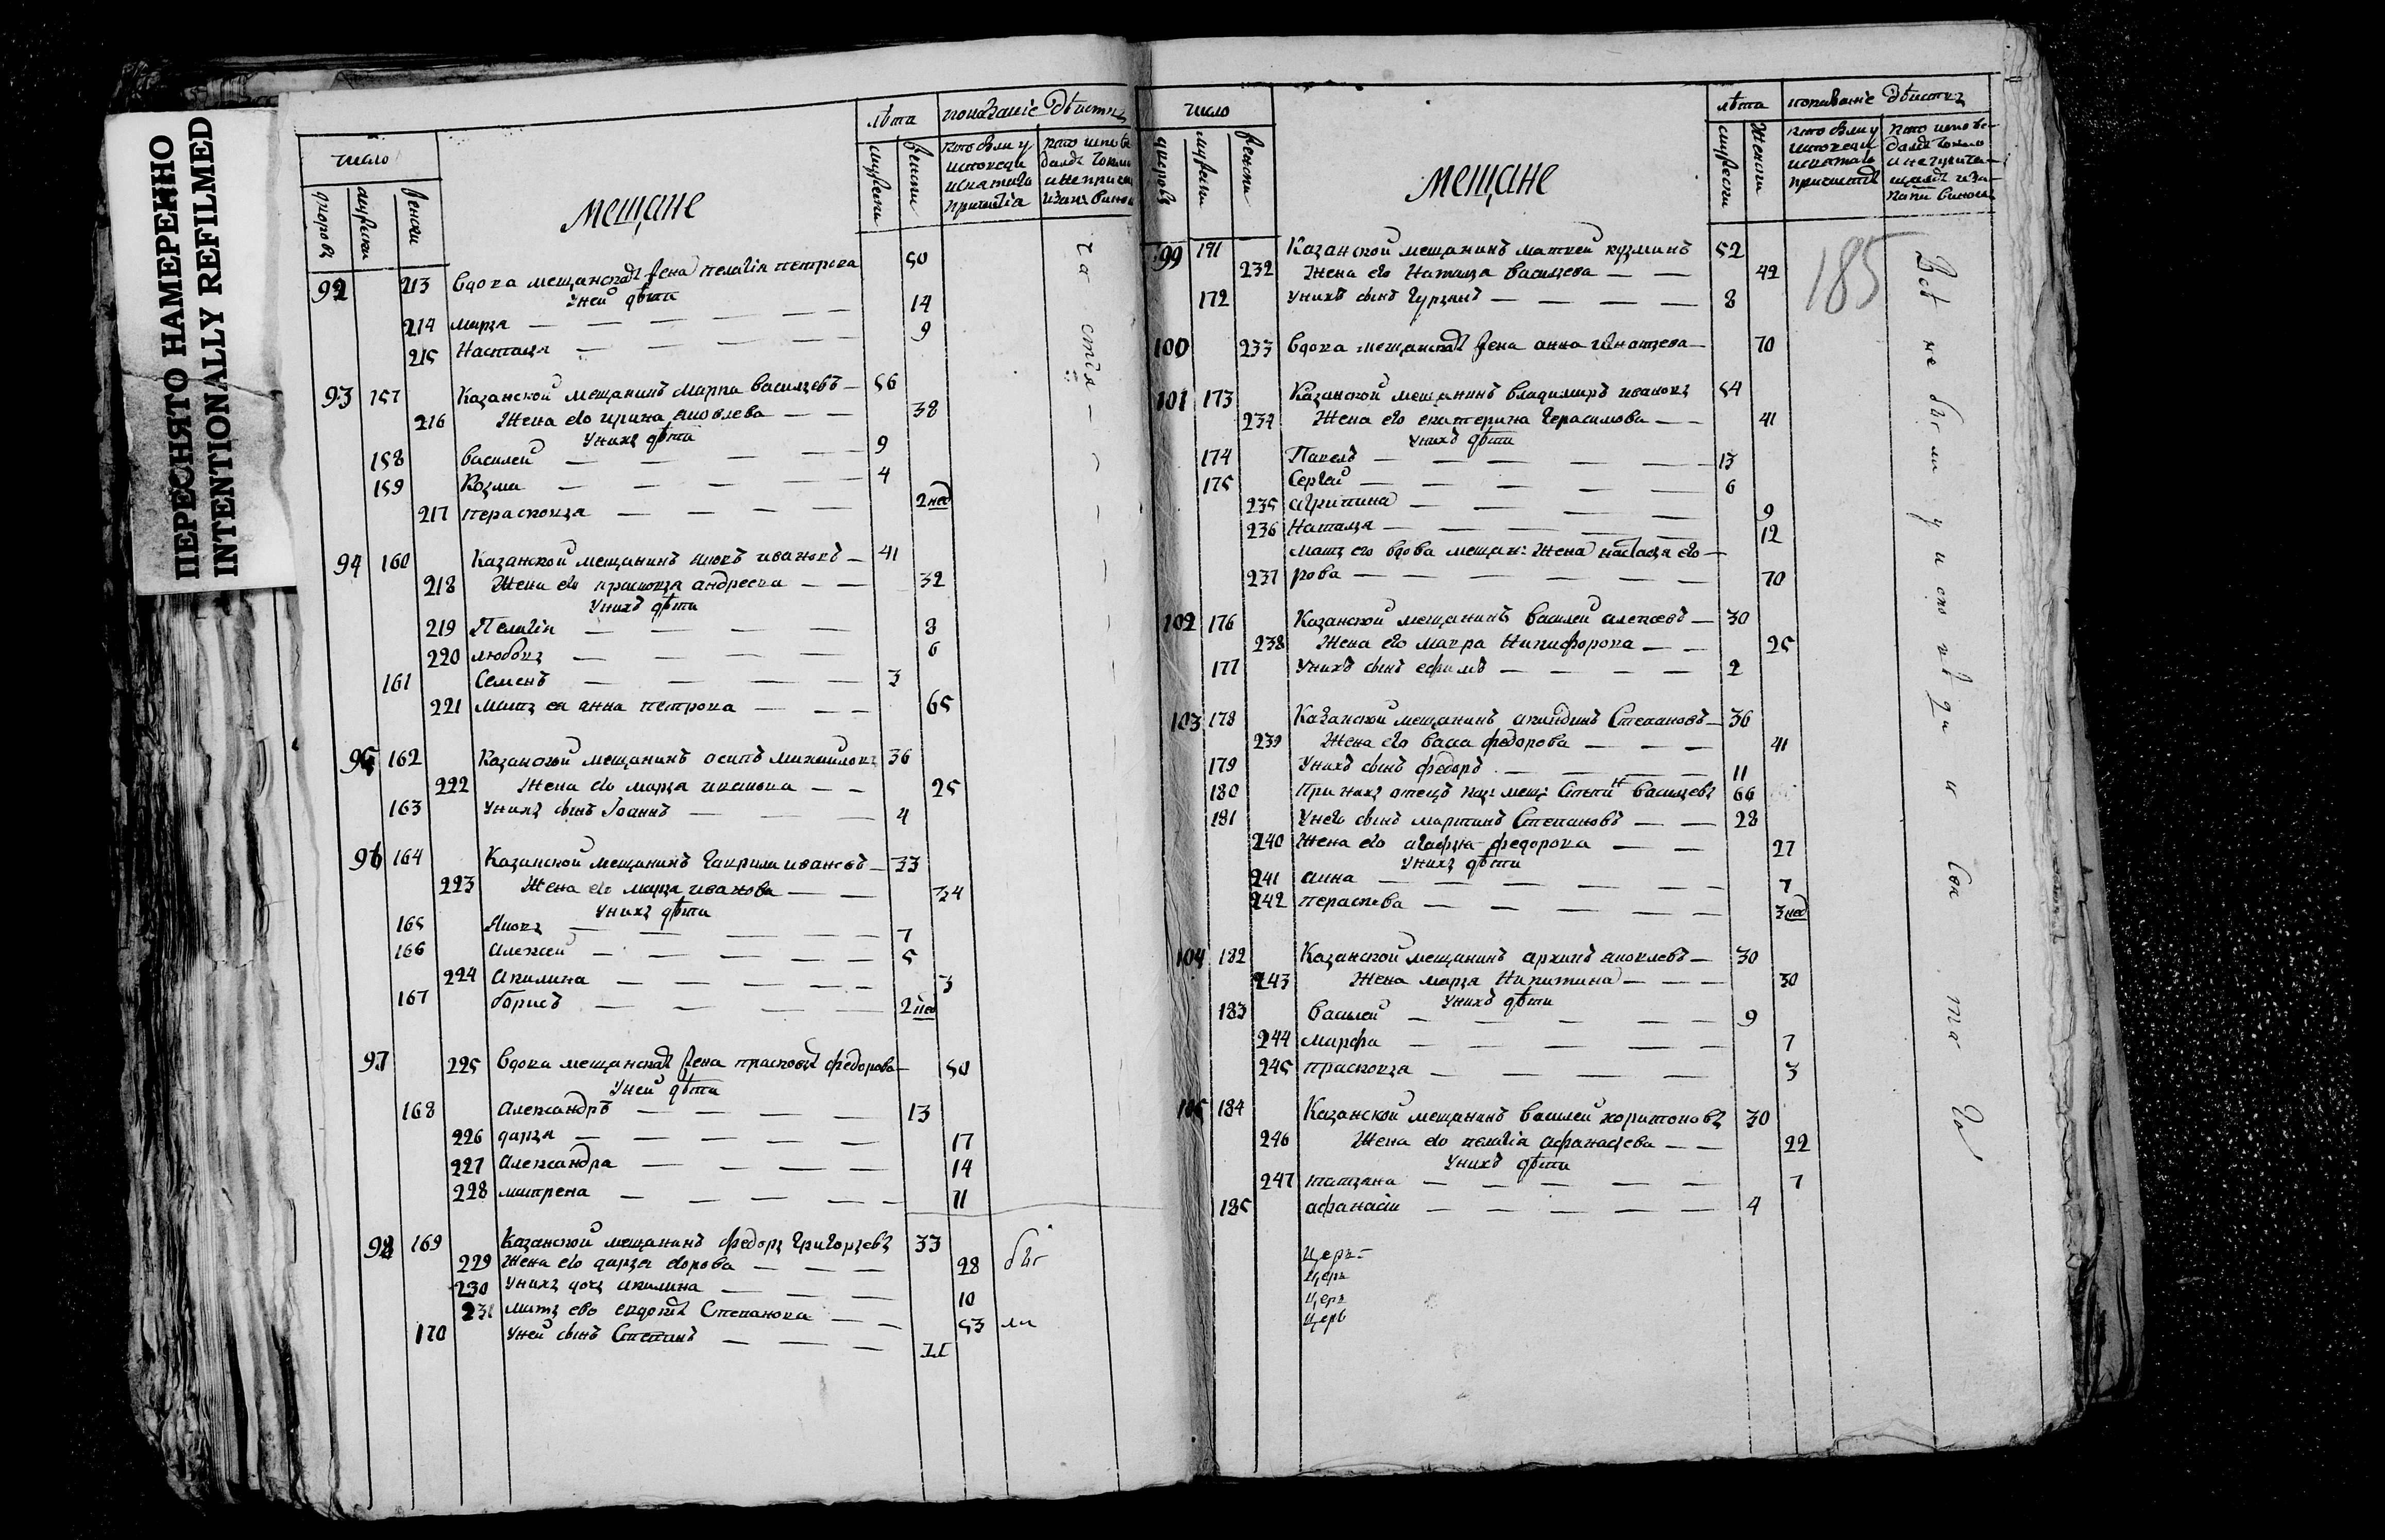 ПЕРЕСНЯТО НАМЕРЕННО
INTENTIONALLY REFILMED
число
лѣта
показаніе дѣиств
дворовъ
мужески
женски
мещане
мужески
женски
92 213 вдова мещанская жена пелагія петрова 50
у неи дѣти
214 марья — 14
215 Настасья — 9
93 157 Казанской мещанинъ марка васильевъ — 56
216 Жена его ирина яковлева — 38
у нихъ дѣти
158 василеи — 9
159 Козма — 4
217 парасковья — 2 нед
94 160 Казанской мещанинъ яковъ ивановъ — 41
218 Жена его прасковья андреева — 32
у нихъ дѣти
219 Пелагія — 8
220 любовь — 6
161 Семенъ — 3
221 мать ея анна петрова — 65
95 162 Казанской мещанинъ осипъ михаиловъ 36
222 Жена его марья иванова — 25
163 у нихъ сынъ Іоаннъ — 4
96 164 Казанской мещанинъ гаврила ивановъ — 33
223 Жена его марья иванова — 34
у нихъ дѣти
165 Яковъ — 7
166 алексеи — 5
224 акилина — 3
167 борисъ — 2 нед
97 225 вдова мещанская жена прасковья федорова — 50
у неи дѣти
168 александръ — 13
226 дарья — 17
227 александра — 14
228 матрена — 11
98 169 Казанской мещанинъ федоръ григорьевъ 33
229 Жена его дарья егорова — 28 бы
230 у нихъ дочь акилина — 10
231 мать его евдокія Степанова — 53 ли
170 у неи сынъ Степанъ — 11
ча стія
число
лѣта
показаніе дѣиств
дворовъ
мужески
женски
мещане
мужески
женски
185
99 171 Казанской мещанинъ матвеи кузминъ 52
232 Жена его Наталья васильева — 42
172 у нихъ сынъ гурьянъ — 8
100 233 вдова мещанская жена анна игнатьева — 70
101 173 Казанской мещанинъ владимиръ ивановъ 54
234 Жена его екатерина герасимова — 41
у нихъ дѣти
174 Павелъ — 13
175 Сергеи — 6
235 агрипина — 9
236 Наталья — 12
мать его вдова мещан: жена настасья его-
237 рова — 70
102 176 Казанской мещанинъ василеи алексеевъ — 30
238 Жена его мавра Никифорова — 25
177 у нихъ сынъ ефимъ — 2
103 178 Казанской мещанинъ акиндинъ Степановъ — 36
239 Жена его васса федорова — 41
179 у нихъ сынъ федоръ — 11
180 При нихъ отецъ каз: мещ: Степанъ васильевъ 66
181 У него сынъ мартинъ Степановъ — 28
240 Жена его агафья федорова — 27
у нихъ дѣти
241 анна — 7
242 параскева — 3 нед
104 182 Казанской мещанинъ архипъ яковлевъ — 30
243 Жена марья Никитина — 30
у нихъ дѣти
183 василеи — 9
244 марфа — 7
245 прасковья — 3
105 184 Казанской мещанинъ василеи харитоновъ 30
246 Жена его пелагія афанасьева — 22
у нихъ дѣти
247 татьяна — 7
185 афанасіи — 4
церк-
церк
церк
церк
Всѣ не были у исповѣди и свя та го